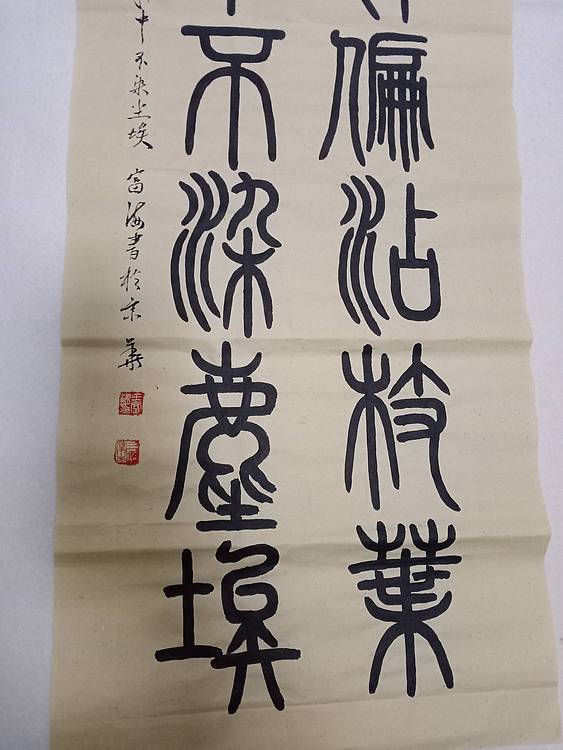 偏沾枝葉
不染塵埃
中不染尘埃 富海書於京華